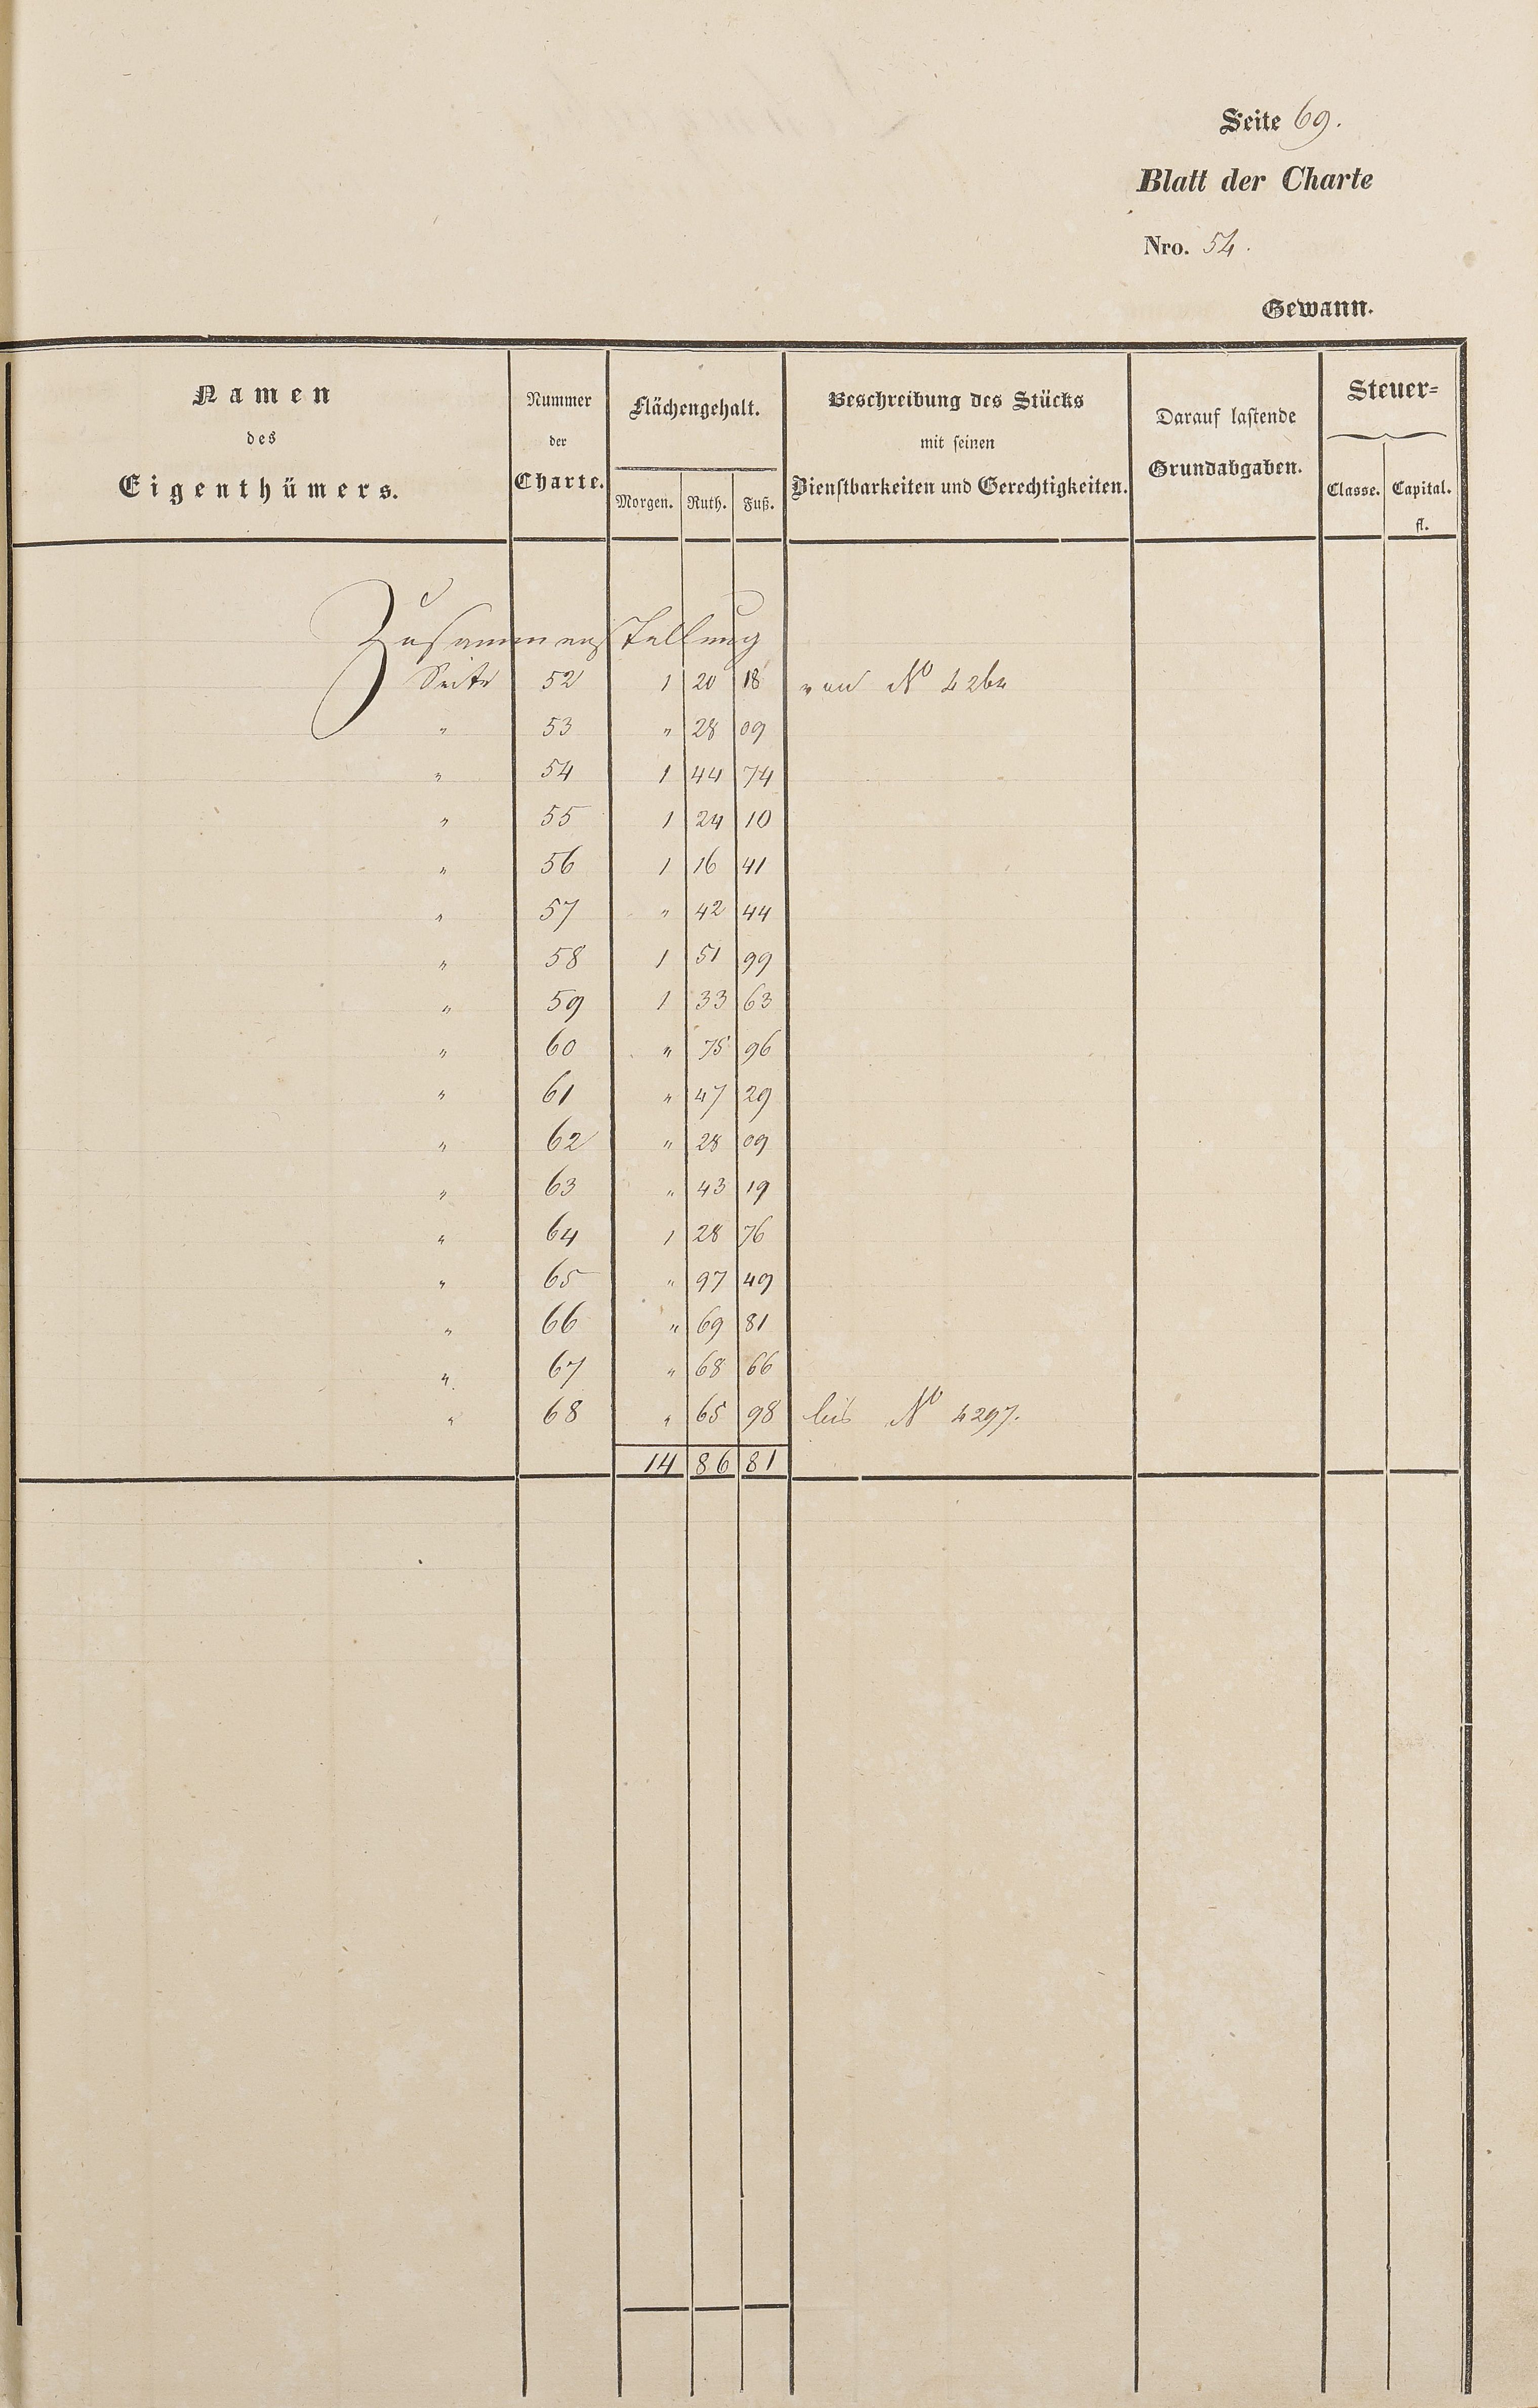 Seite 69.
Blatt der Charte
Nro. 54.
Gewann.
Namen des Eigenthümers. Nummer der Charte. Flächengehalt. Morgen. Ruth. Fuß. Beschreibung des Stücks mit seinen Dienstbarkeiten und Gerechtigkeiten. Darauf lastende Grundabgaben. Steuer= Classe. Capital. fl.
Zusammenstellung
Seite 52 1 20 18 von No 4264
" 53 " 28 09
" 54 1 44 74
" 55 1 24 10
" 56 1 16 41
" 57 " 42 44
" 58 1 51 99
" 59 1 33 63
" 60 " 75 96
" 61 " 47 29
" 62 " 28 09
" 63 " 43 19
" 64 1 28 76
" 65 " 97 49
" 66 " 69 81
" 67 " 68 66
" 68 " 65 98 bis No 4297.
14 86 81